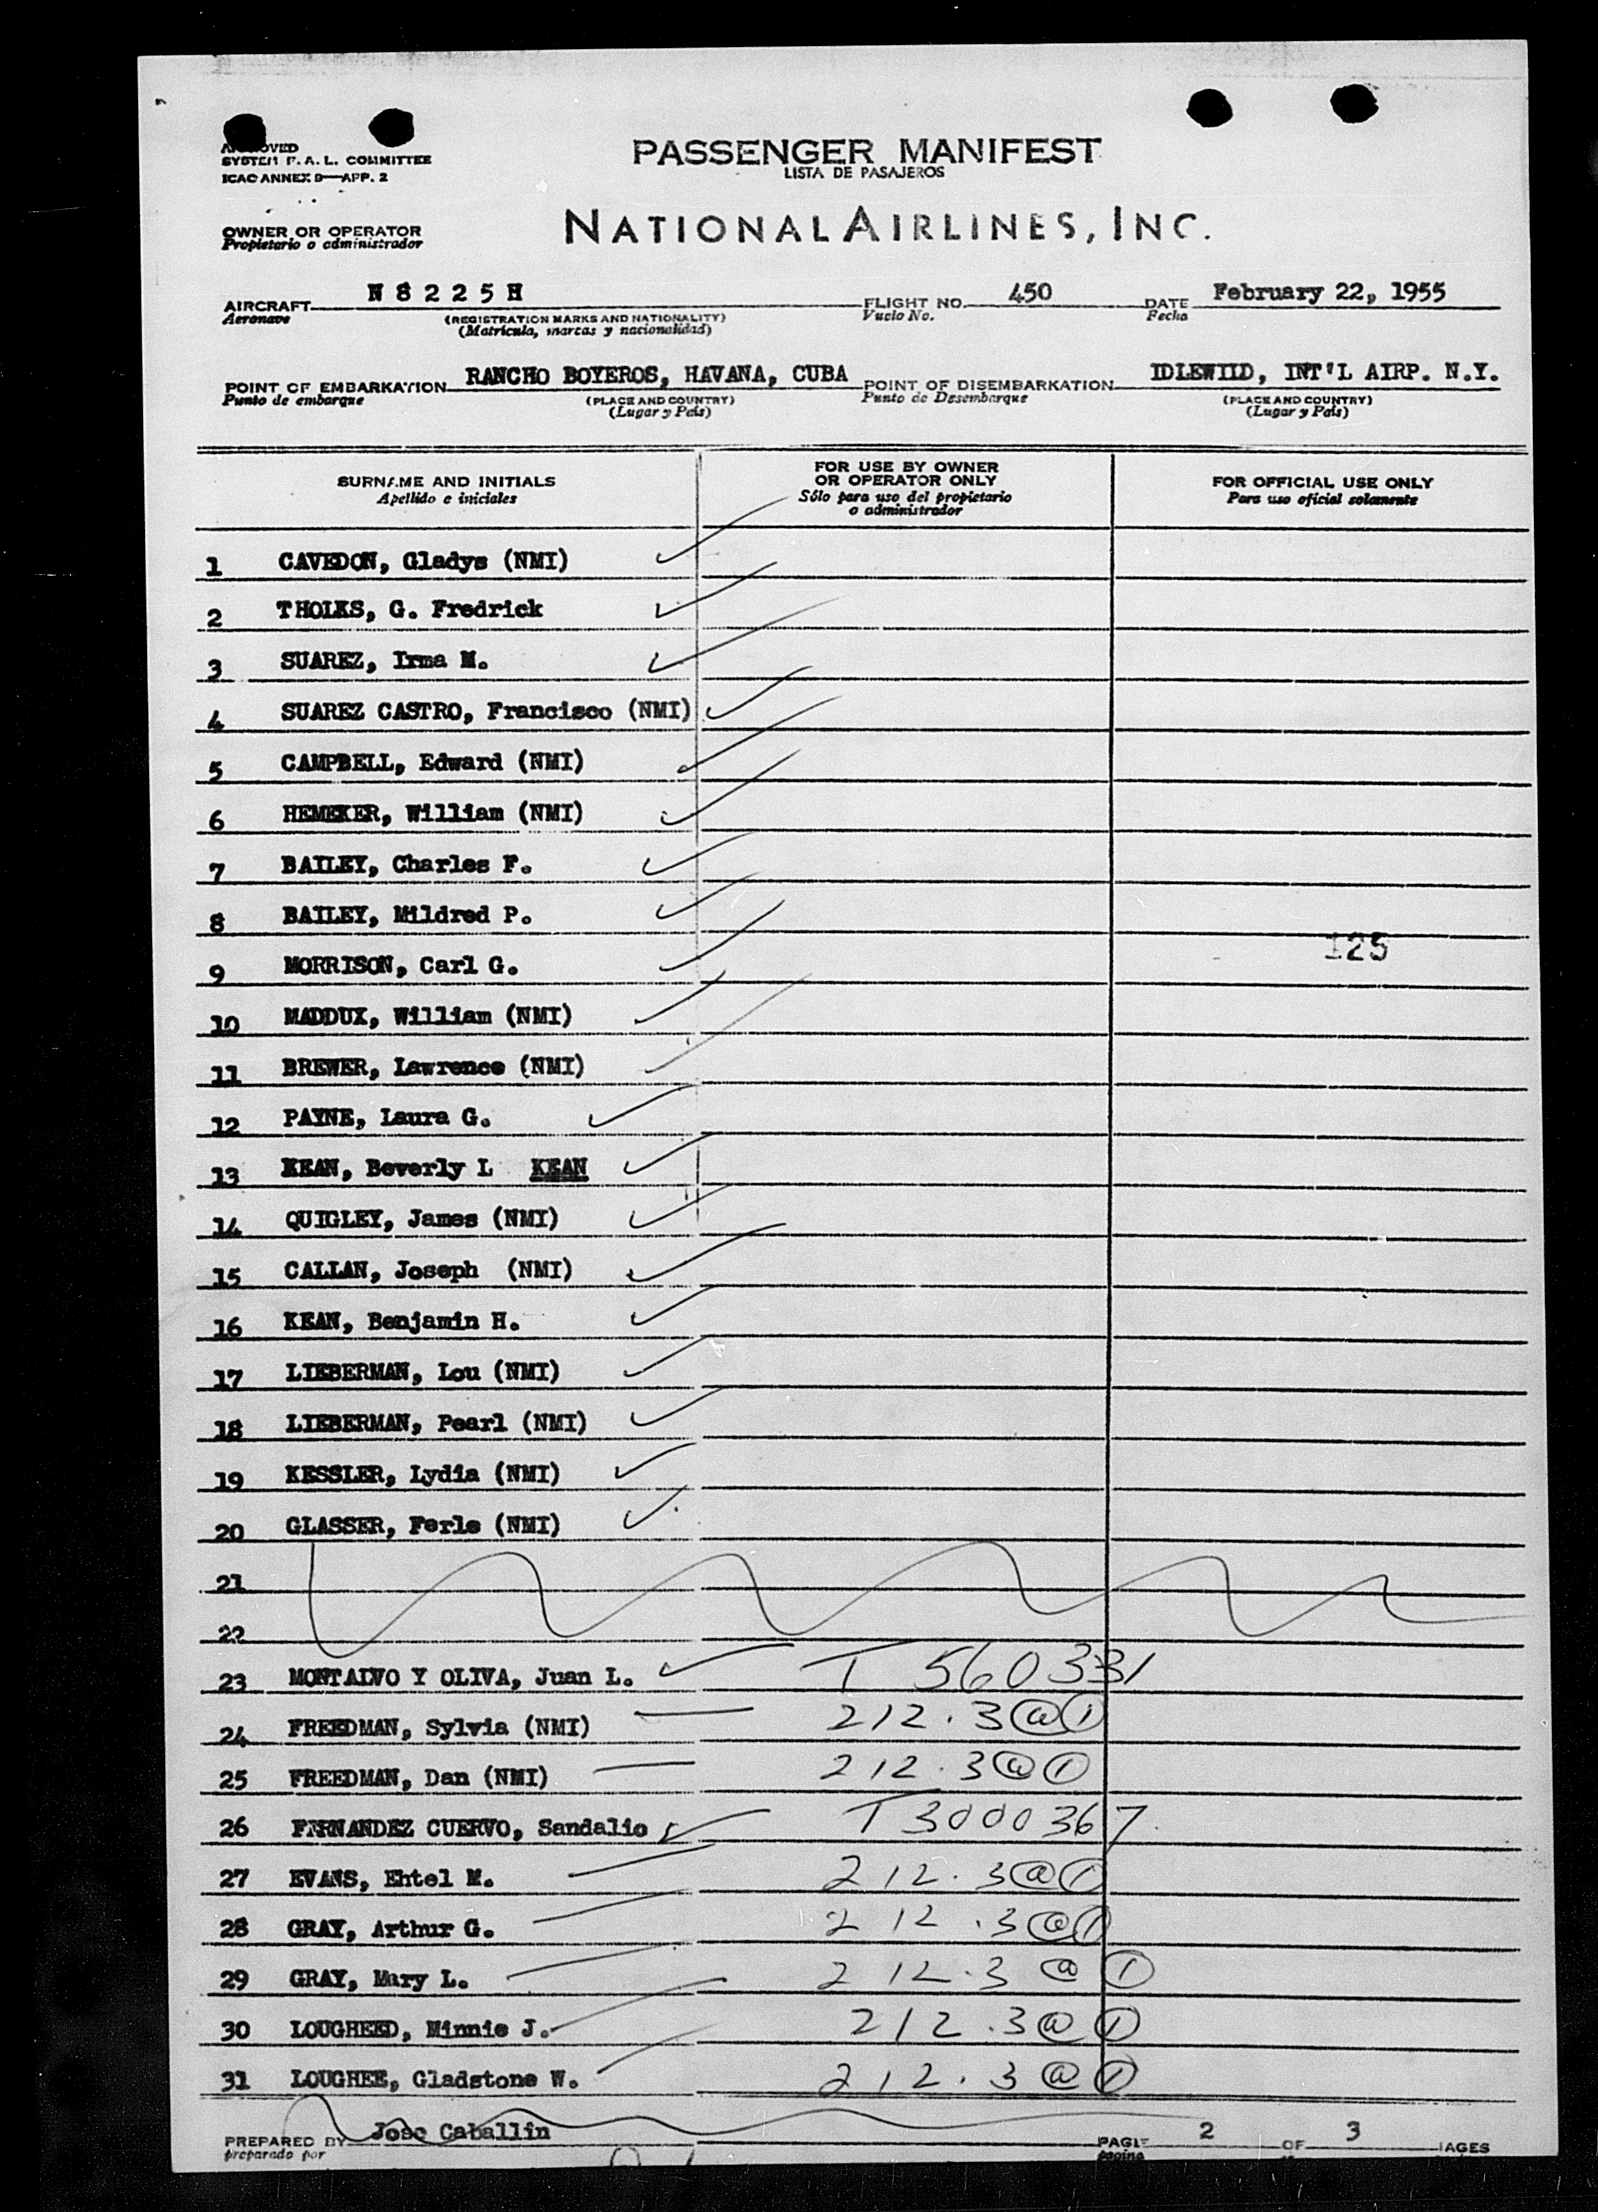 APPROVED
SYSTEM F. A. L. COMMITTEE
ICAO ANNEX 9—APP. 2
PASSENGER MANIFEST
LISTA DE PASAJEROS
OWNER OR OPERATOR
Propietario o administrador
NATIONAL AIRLINES, INC.
AIRCRAFT N 8 2 2 5 H FLIGHT NO. 450 DATE February 22, 1955
Aeronave (REGISTRATION MARKS AND NATIONALITY) Vuelo No. Fecha
(Matrícula, marcas y nacionalidad)
POINT OF EMBARKATION RANCHO BOYEROS, HAVANA, CUBA POINT OF DISEMBARKATION IDLEWILD, INT'L AIRP. N.Y.
Punto de embarque (PLACE AND COUNTRY) Punto de Desembarque (PLACE AND COUNTRY)
(Lugar y País) (Lugar y País)
SURNAME AND INITIALS FOR USE BY OWNER OR OPERATOR ONLY FOR OFFICIAL USE ONLY
Apellido e iniciales Sólo para uso del propietario o administrador Para uso oficial solamente
1 CAVEDON, Gladys (NMI)
2 THOLKS, G. Fredrick
3 SUAREZ, Irma M.
4 SUAREZ CASTRO, Francisco (NMI)
5 CAMPBELL, Edward (NMI)
6 HEMEKER, William (NMI)
7 BAILEY, Charles F.
8 BAILEY, Mildred P.
125
9 MORRISON, Carl G.
10 MADDUX, William (NMI)
11 BREWER, Lawrence (NMI)
12 PAYNE, Laura G.
13 KEAN, Beverly L KEAN
14 QUIGLEY, James (NMI)
15 CALLAN, Joseph (NMI)
16 KEAN, Benjamin H.
17 LIEBERMAN, Lou (NMI)
18 LIEBERMAN, Pearl (NMI)
19 KESSLER, Lydia (NMI)
20 GLASSER, Ferle (NMI)
21
22
23 MONTALVO Y OLIVA, Juan L. T 560331
24 FREEDMAN, Sylvia (NMI) 212.3 @ 1
25 FREEDMAN, Dan (NMI) 212.3 @ 1
26 FERNANDEZ CUERVO, Sandalio T 3000367
27 EVANS, Ehtel M. 212.3 @ 1
28 GRAY, Arthur G. 212.3 @ 1
29 GRAY, Mary L. 212.3 @ 1
30 LOUGHEED, Minnie J. 212.3 @ 1
31 LOUGHEE, Gladstone W. 212.3 @ 1
PREPARED BY Jose Caballin PAGE 2 OF 3 PAGES
preparado por página